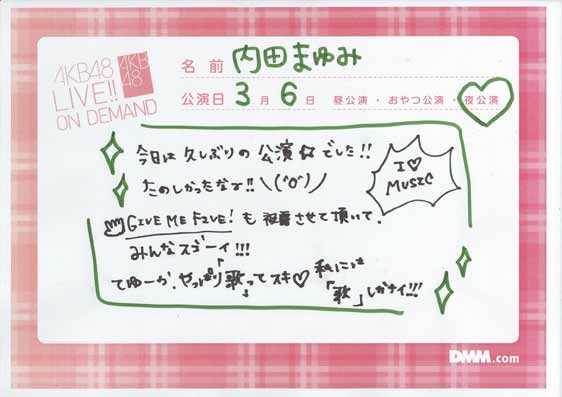 AKB48
LIVE!!
ON DEMAND
AKB
48
名前 内田まゆみ
公演日 3月6日 昼公演・おやつ公演・夜公演
今日は久しぶりの公演☆でした!!
たのしかったなァ!! \(^o^)/
I♡
MUSIC
GIVE ME FIVE! も披露させて頂いて、
みんなスゴーイ!!!
てゆーか、やっぱり「歌」ってスキ♡ 私には
「歌」しかナイ!!!
DMM.com